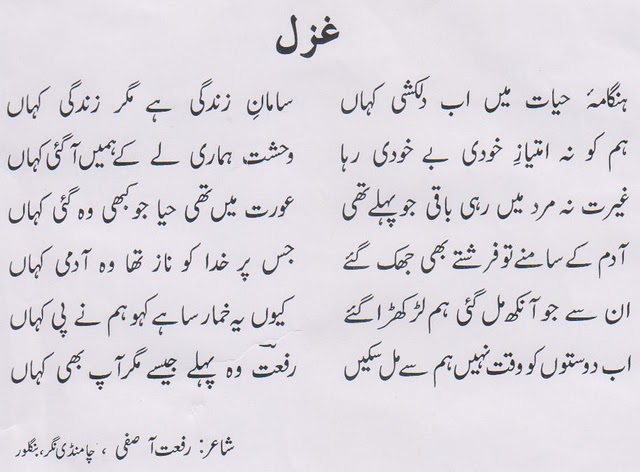 غزل
ہنگامۂ حیات میں اب دلکشی کہاں سامانِ زندگی ہے مگر زندگی کہاں
ہم کو نہ امتیازِ خودی بے خودی رہا وحشت ہماری لے کے ہمیں آ گئی کہاں
غیرت نہ مرد میں رہی باقی جو پہلے تھی عورت میں تھی حیا جو کبھی وہ گئی کہاں
آدم کے سامنے تو فرشتے بھی جھک گئے جس پر خدا کو ناز تھا وہ آدمی کہاں
ان سے جو آنکھ مل گئی ہم لڑکھڑا گئے کیوں یہ خمار سا ہے کہو ہم نے پی کہاں
اب دوستوں کو وقت نہیں ہم سے مل سکیں رفعتؔ وہ پہلے جیسے مگر آپ بھی کہاں
شاعر: رفعت آصفی ، چامنڈی نگر، بنگلور